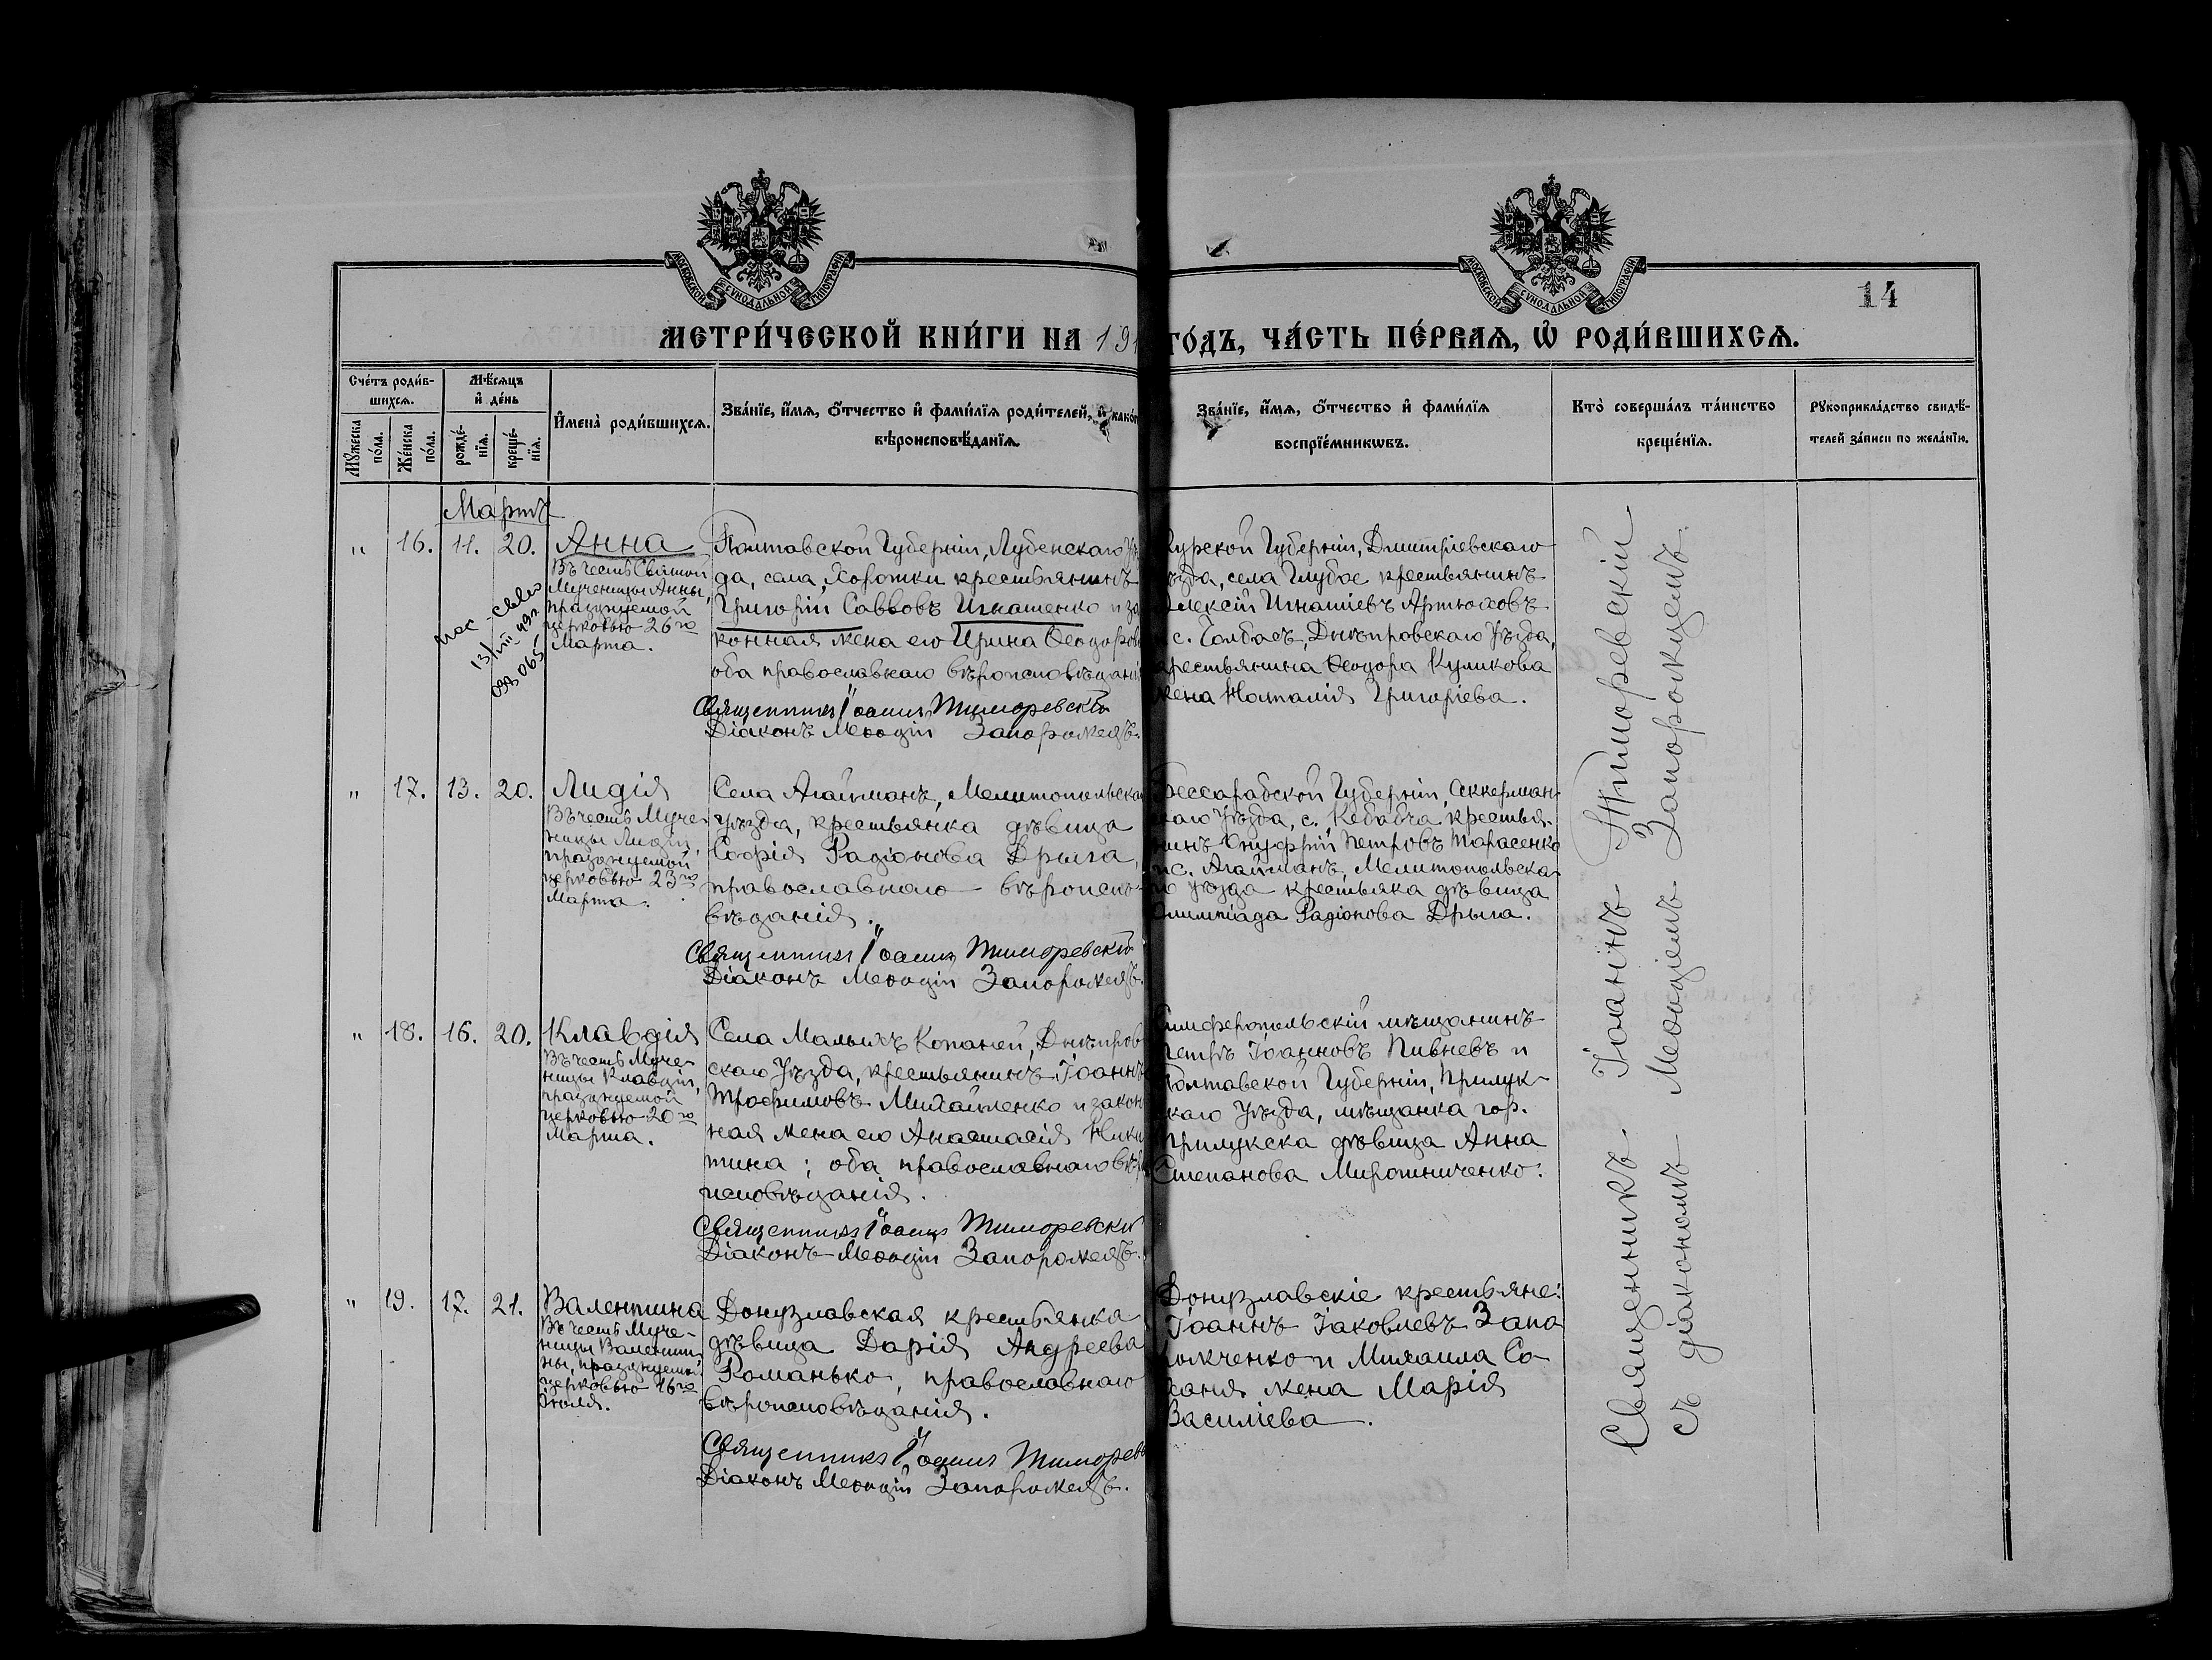 МОСКОВСКОЙ СУНОДАЛЬНОЙ ТИПОГРАФИИ
МОСКОВСКОЙ СУНОДАЛЬНОЙ ТИПОГРАФИИ
14
МЕТРИ́ЧЕСКОЙ КНИ́ГИ НА 191
ГО́ДЪ, ЧА́СТЬ ПЕ́РВАѦ, Ѡ҆ РОДИ́ВШИХСѦ.
Сче́тъ роди́в-
шихсѧ.
Мꙋ́жеска по́ла.
Же́нска по́ла.
Мѣ́сѧцъ
и҆ де́нь
рожде́-
нїѧ.
креще́-
нїѧ.
И҆мена̀ роди́вшихсѧ.
Зва́нїе, и҆́мѧ, ѻ҆́тчество и҆ фами́лїѧ роди́телей, и҆ како́г
вѣроисповѣ́данїѧ.
Зва́нїе, и҆́мѧ, ѻ҆́тчество и҆ фами́лїѧ
воспрїе́мникѡвъ.
Кто̀ соверша́лъ та́инство
креще́нїѧ.
Рꙋкоприкла́дство свидѣ́-
телей за́писи по жела́нїю.
Мартъ
" 16. 11. 20. Анна
Въ честь Святой
Мученицы Анны,
празднуемой
церковью 26го
Марта.
13/VIII 492
093065
Полтавской Губерніи, Лубенскаго Уѣ
да, села Хоротки крестьянинъ
Григорій Саввовъ Игнатенко и за
конная жена его Ирина Ѳеодоров
оба православнаго вѣроисповѣдані
Священникъ Іоаннъ Тиморевскій
Діаконъ Меѳодій Запорожецъ.
Курской Губерніи, Дмитріевскаго
ѣзда, села Глубое крестьянинъ
Алексій Игнатіевъ Артюховъ
и с. Чолбасъ, Днѣпровскаго Уѣзда,
крестьянина Ѳеодора Куликова
жена Наталія Григоріева.
" 17. 13. 20. Лидія
Въ честь Муче-
ницы Лидіи,
празднуемой
церковью 23го
Марта.
Села Агайманъ, Мелитопольска
Уѣзда, крестьянка дѣвица
Софія Радіонова Дрыга,
православнаго вѣроиспо-
вѣданія.
Священникъ Іоаннъ Тиморевскій
Діаконъ Меѳодій Запорожецъ.
Бессарабской Губерніи, Аккерман-
каго Уѣзда, с. Кебабча крестья-
нинъ Онуфрій Петровъ Тарасенко
и с. Агайманъ, Мелитопольска-
го уѣзда крестьяка дѣвица
Олимпіада Радіонова Дрыга.
" 18. 16. 20. Клавдія
Въ честь Муче-
ницы Клавдіи,
празднуемой
церковью 20го
Марта.
Села Малыхъ Копаней, Днѣпров
скаго Уѣзда, крестьянинъ Іоаннъ
Трофимовъ Михайленко и закон
ная жена его Анастасія Ники
тина; оба православнаго вѣр
исповѣданія.
Священникъ Іоаннъ Тиморевскі
Діаконъ Меѳодій Запорожецъ.
Симферопольскій мѣщанинъ
Петръ Іоанновъ Пивневъ и
Полтавской Губерніи, Прилук-
каго Уѣзда, мѣщанка гор.
Прилукска дѣвица Анна
Степанова Мирошниченко.
" 19. 17. 21. Валентина
Въ честь Муче-
ницы Валенти-
ны, празднуемой
церковью 16го
Іюля.
Донузлавская крестьянка
дѣвица Дарія Андреева
Романько, православнаго
вѣроисповѣданія.
Священникъ Іоаннъ Тиморев
Діаконъ Меѳодій Запорожецъ.
Донузлавскіе крестьяне:
Іоаннъ Іаковлевъ Запо
рожченко и Михаила Со-
ханя жена Марія
Василіева.
Священникъ Іоаннъ Тиморевскій
съ діакономъ Меѳодіемъ Запорожцемъ